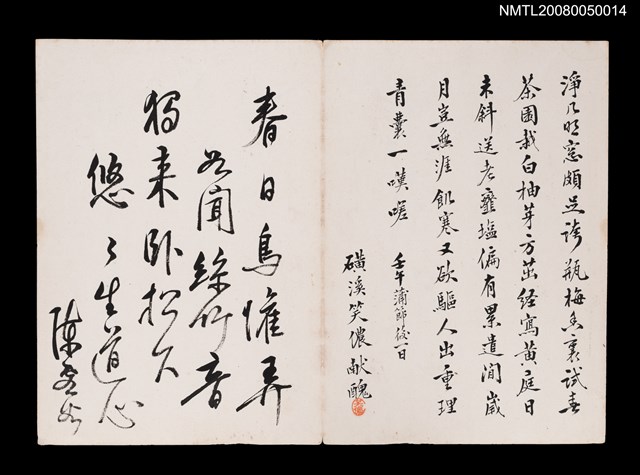 NMTL20080050014
淨几明窓頗足誇瓶梅香裏試春
茶園栽白柚芽方茁經寫黃庭日
未斜送老虀塩偏有累遣閒歲
月豈無涯飢寒又欲驅人出重理
青囊一嘆嗟 壬午蒲節後一日
磺溪笑儂献醜
春日鳥弄
聞絲竹音
獨來卧松下
悠々生道心
陳